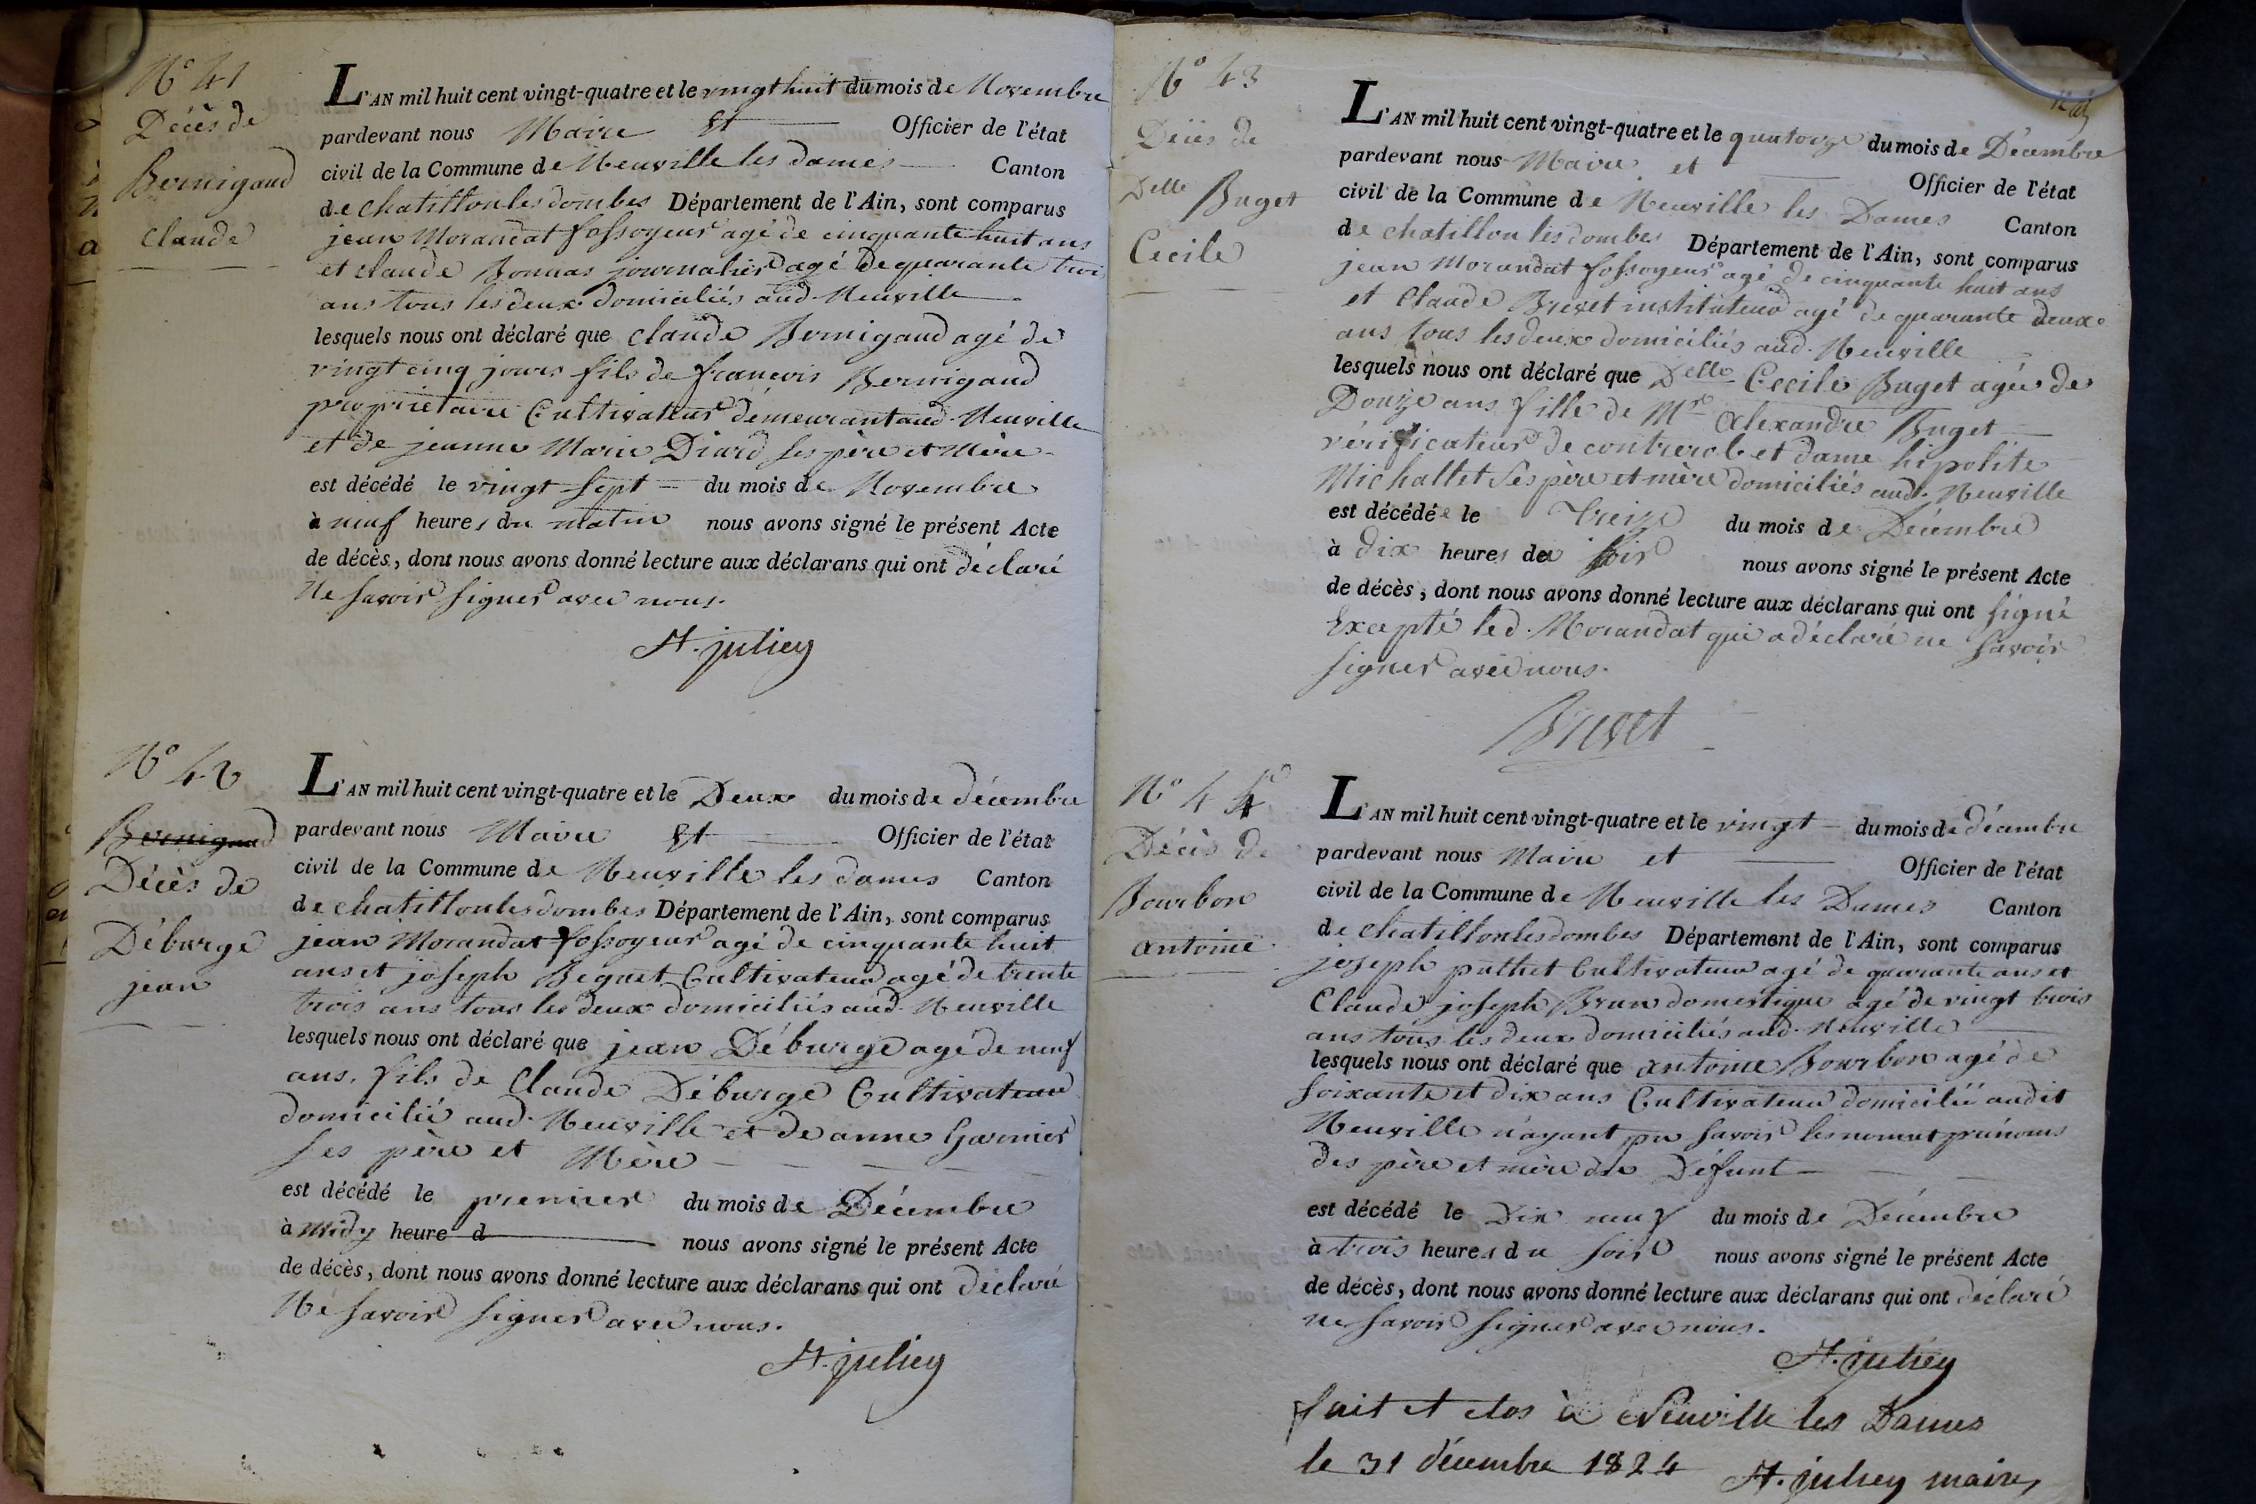 N° 41
Décès de
Bernigaud
Claude
L'AN mil huit cent vingt-quatre et le vingt huit du mois de Novembre
pardevant nous Maire et Officier de l'état
civil de la Commune de Neuville les dames Canton
de chatillon les dombes Département de l'Ain, sont comparus
jean Morandat fossoyeur agé de cinquante huit ans
et claude Bonnas journalier agé de quarante trois
ans tous les deux domiciliés aud. Neuville
lesquels nous ont déclaré que claude Bernigaud agé de
vingt cinq jours fils de françois Bernigaud
propriétaire Cultivateur demeurant aud. Neuville
et de jeanne Marie Diard ses père et Mère
est décédé le vingt sept du mois de Novembre
à neuf heures du matin nous avons signé le présent Acte
de décès, dont nous avons donné lecture aux déclarans qui ont déclaré
Ne savoir signer avec nous.
St. julien
N° 42
Bernigaud
Décès de
Déburge
jean
L'AN mil huit cent vingt-quatre et le Deux du mois de décembre
pardevant nous Maire Et Officier de l'état
civil de la Commune de Neuville les dames Canton
de chatillon les dombes Département de l'Ain, sont comparus
jean Morandat fossoyeur agé de cinquante huit
ans et joseph Beguet Cultivateur agé de trente
trois ans tous les deux domiciliés aud. Neuville
lesquels nous ont déclaré que jean Déburge agé de neuf
ans, fils de Claude Déburge Cultivateur
domicilié aud. Neuville et de anne Garnier
ses père et Mère
est décédé le premier du mois de Décembre
à Midy heure d nous avons signé le présent Acte
de décès, dont nous avons donné lecture aux déclarans qui ont déclaré
Ne savoir signer avec nous.
St. julien
N° 43
Décès de
Delle Buget
Cecile
L'AN mil huit cent vingt-quatre et le quatorze du mois de Décembre
pardevant nous Maire et Officier de l'état
civil de la Commune de Neuville les Dames Canton
de chatillon les dombes Département de l'Ain, sont comparus
jean Morandat fossoyeur agé de cinquante huit ans
et Claude Brevet instituteur agé de quarante deux
ans tous les deux domiciliés aud. Neuville
lesquels nous ont déclaré que Delle Cecile Buget agée de
Douze ans fille de Mr Alexandre Buget
vérificateur de controrole et dame hipolite
Michallet ses père et mère domiciliés aud. Neuville
est décédée le treize du mois de Décembre
à dix heures du soir nous avons signé le présent Acte
de décès, dont nous avons donné lecture aux déclarans qui ont signé
Excepté led. Morandat qui a déclaré ne savoir
signer avec nous.
Brevet
N° 44
Décès de
Bourbon
antoine
L'AN mil huit cent vingt-quatre et le vingt du mois de décembre
pardevant nous Maire et Officier de l'état
civil de la Commune de Neuville les Dames Canton
de chatillon les dombes Département de l'Ain, sont comparus
joseph puthet Cultivateur agé de quarante ans et
Claude joseph Brun domestique agé de vingt trois
ans tous les deux domiciliés aud. Neuville
lesquels nous ont déclaré que antoine Bourbon agé de
soixante et dix ans Cultivateur domicilié audit
Neuville n'ayant pu savoir les noms et prénoms
des père et mère du Défunt
est décédé le Dix neuf du mois de Décembre
à trois heures du soir nous avons signé le présent Acte
de décès, dont nous avons donné lecture aux déclarans qui ont déclaré
ne savoir signer avec nous.
St. julien
fait et clos à Neuville les Dames
le 31 décembre 1824 St. julien maire